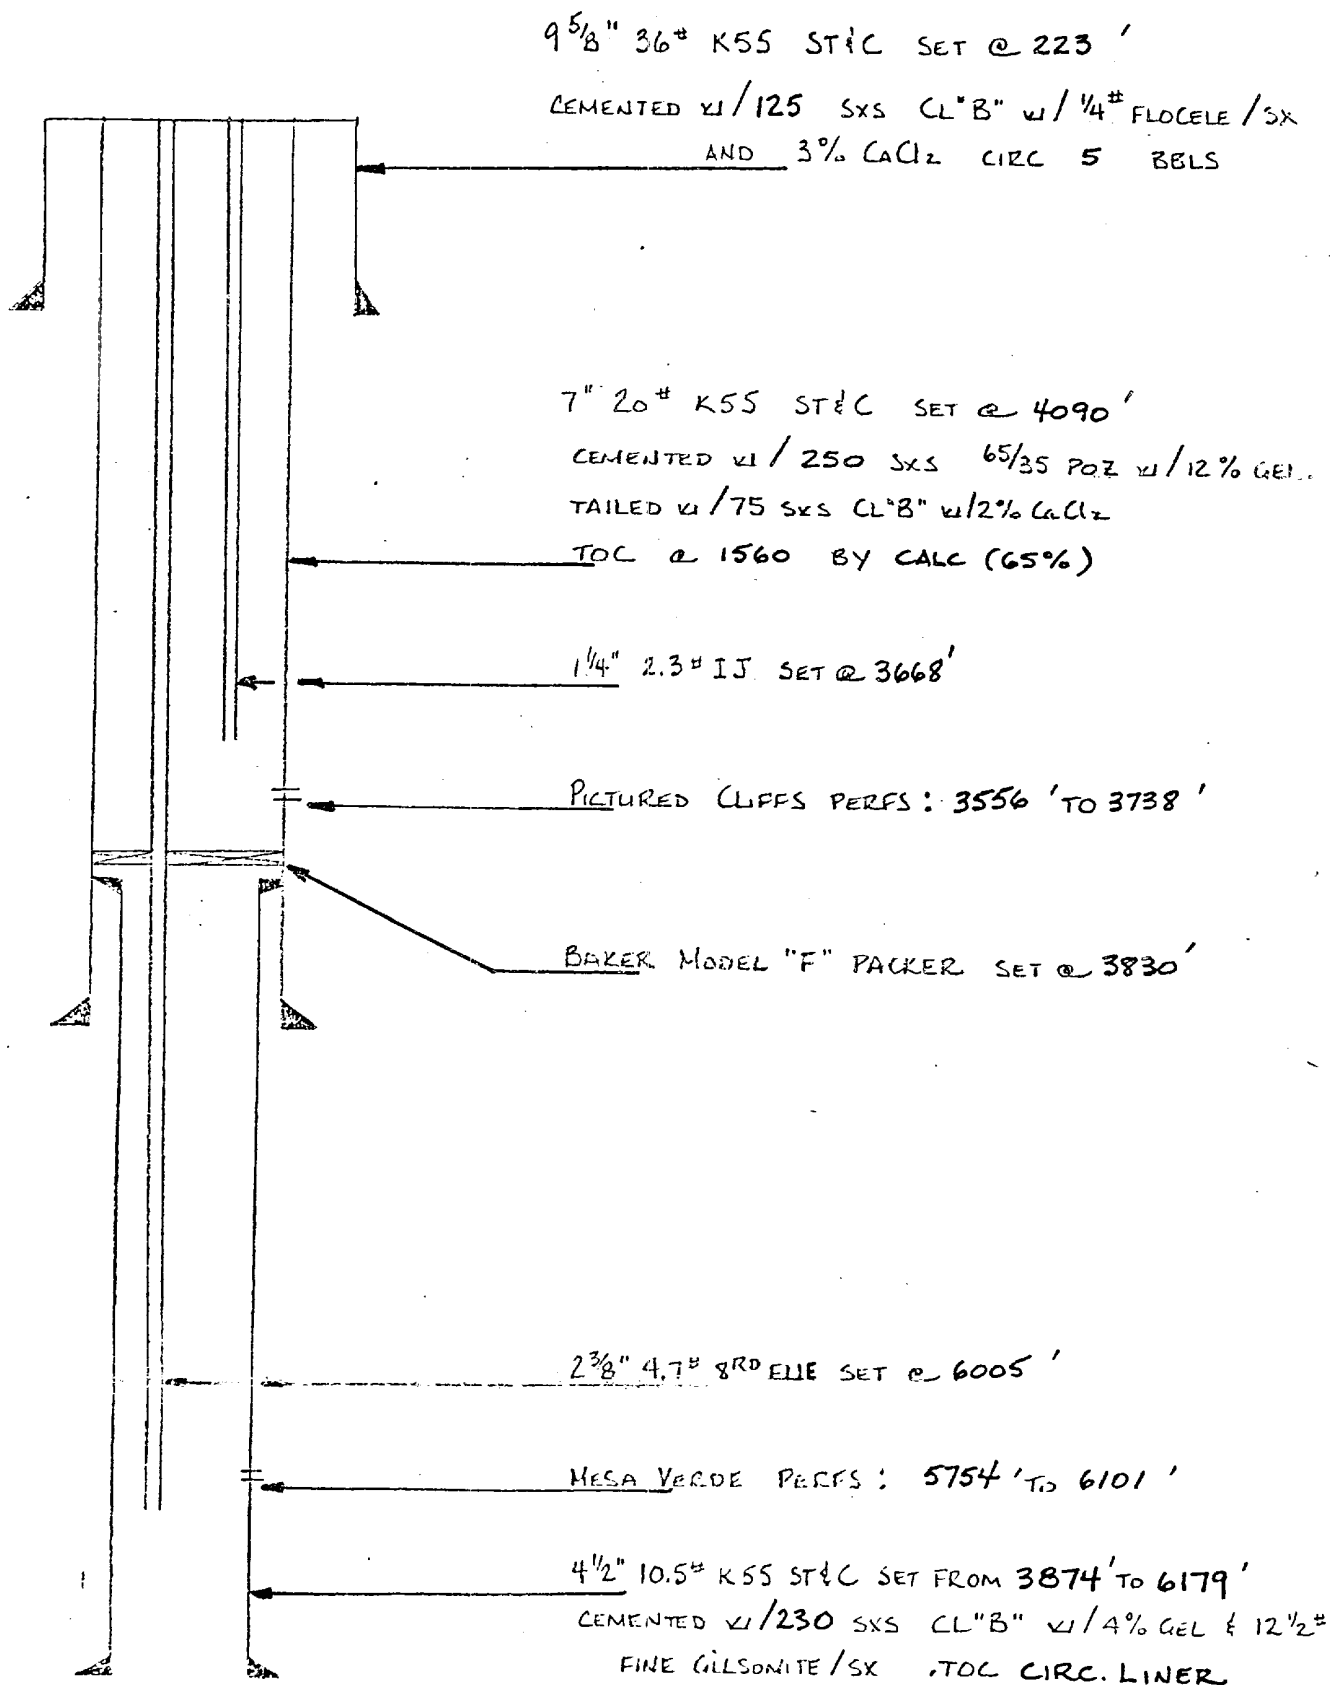 9 5/8" 36# K55 ST&C SET @ 223'
CEMENTED W/125 SXS CL"B" W/ 1/4# FLOCELE/SX
AND 3% CaCl2 CIRC 5 BBLS
7" 20# K55 ST&C SET @ 4090'
CEMENTED W/250 SXS 65/35 POZ W/12% GEL.
TAILED W/75 SXS CL"B" W/2% CaCl2
TOC @ 1560 BY CALC (65%)
1 1/4" 2.3# IJ SET @ 3668'
PICTURED CLIFFS PERFS: 3556' TO 3738'
BAKER MODEL "F" PACKER SET @ 3830'
2 3/8" 4.7# 8RD EUE SET @ 6005'
MESA VERDE PERFS: 5754' TO 6101'
4 1/2" 10.5# K55 ST&C SET FROM 3874' TO 6179'
CEMENTED W/230 SXS CL"B" W/4% GEL & 12 1/2#
FINE GILSONITE/SX .TOC CIRC. LINER